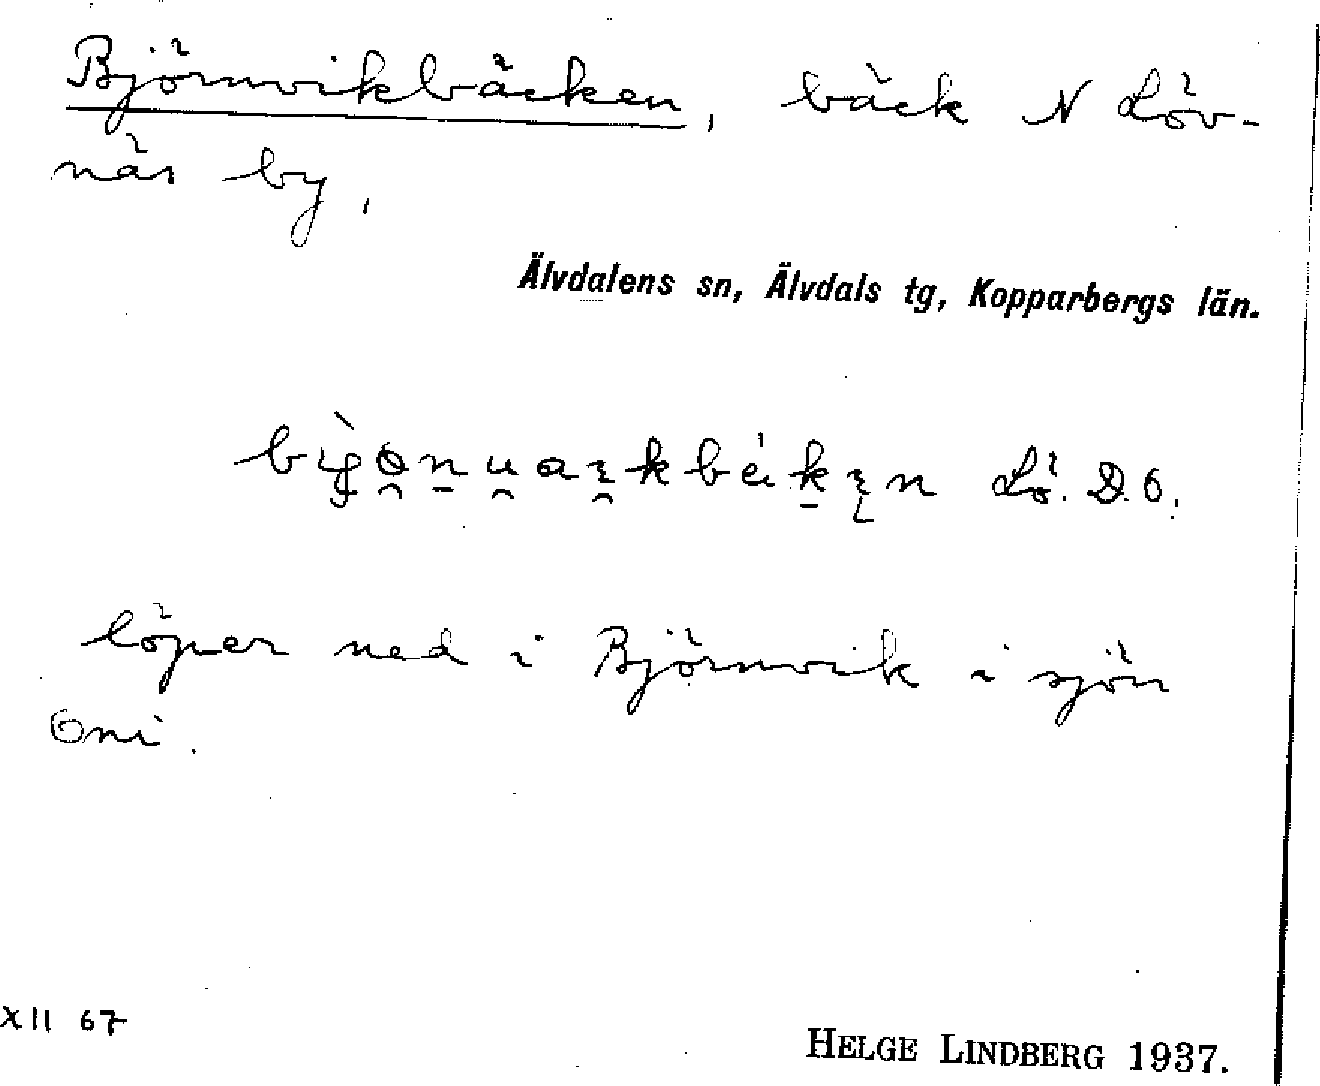 Björnvikbäcken, bäck N Löv-
näs by,
Älvdalens sn, Älvdals tg, Kopparbergs län.
Lö. D. 6.
löper ned i Björnvik i sjön
Oni.
XII 67
HELGE LINDBERG 1937.